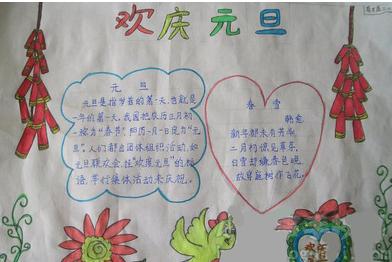 欢庆元旦
元旦
元旦是指岁首的第一天,也就是
一年的第一天。我国把农历正月初
一称为"春节",阳历一月一日定为"元
旦"。人们都会团体组织活动,如
元旦联欢会,挂"欢度元旦"的标
语,举行集体活动来庆祝。
春雪
韩愈
新年都未有芳华
二月初惊见草芽。
白雪却嫌春色晚
故穿庭树作飞花。
欢庆